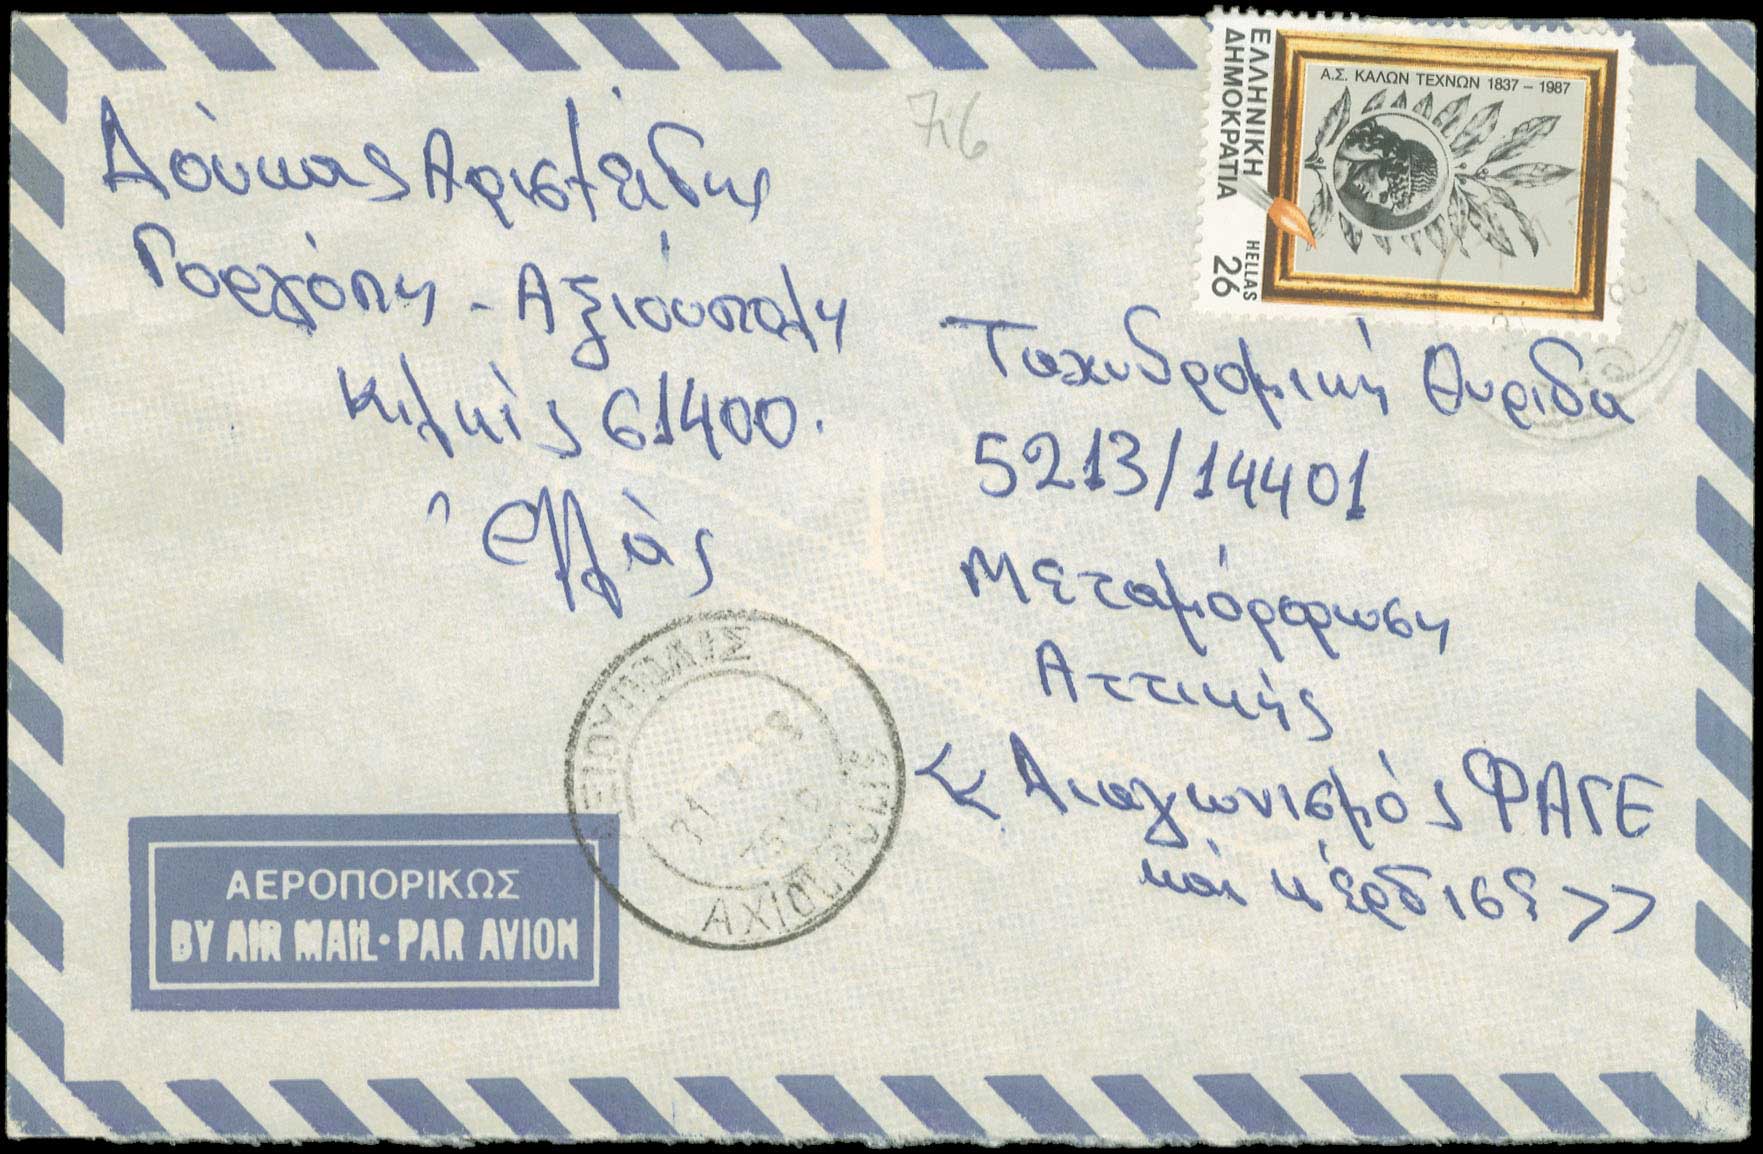 Δούκας Αριστείδης
Γοργόπη - Αξιούπολη
Κιλκίς 61400.
Ελλάς
76
ΕΛΛΗΝΙΚΗ
ΔΗΜΟΚΡΑΤΙΑ
HELLAS
26
Α.Σ. ΚΑΛΩΝ ΤΕΧΝΩΝ 1837 – 1987
Ταχυδρομική Θυρίδα
5213/14401
Μεταμόρφωση
Αττικής
<< Διαγωνισμός ΦΑΓΕ
και κέρδισε >>
ΑΞΙΟΥΠΟΛΙΣ
AXIOUPOLIS
ΑΕΡΟΠΟΡΙΚΩΣ
BY AIR MAIL • PAR AVION